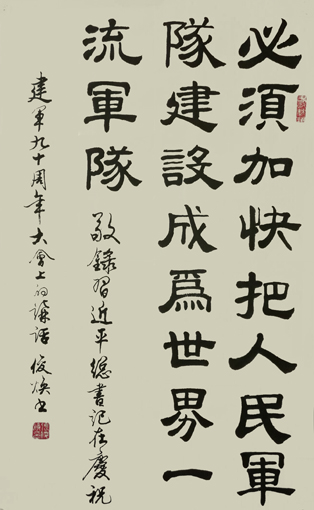 必須加快把人民軍
隊建設成為世界一
流軍隊
敬錄習近平總書记在慶祝
建軍九十周年大會上的講话 俊煥书